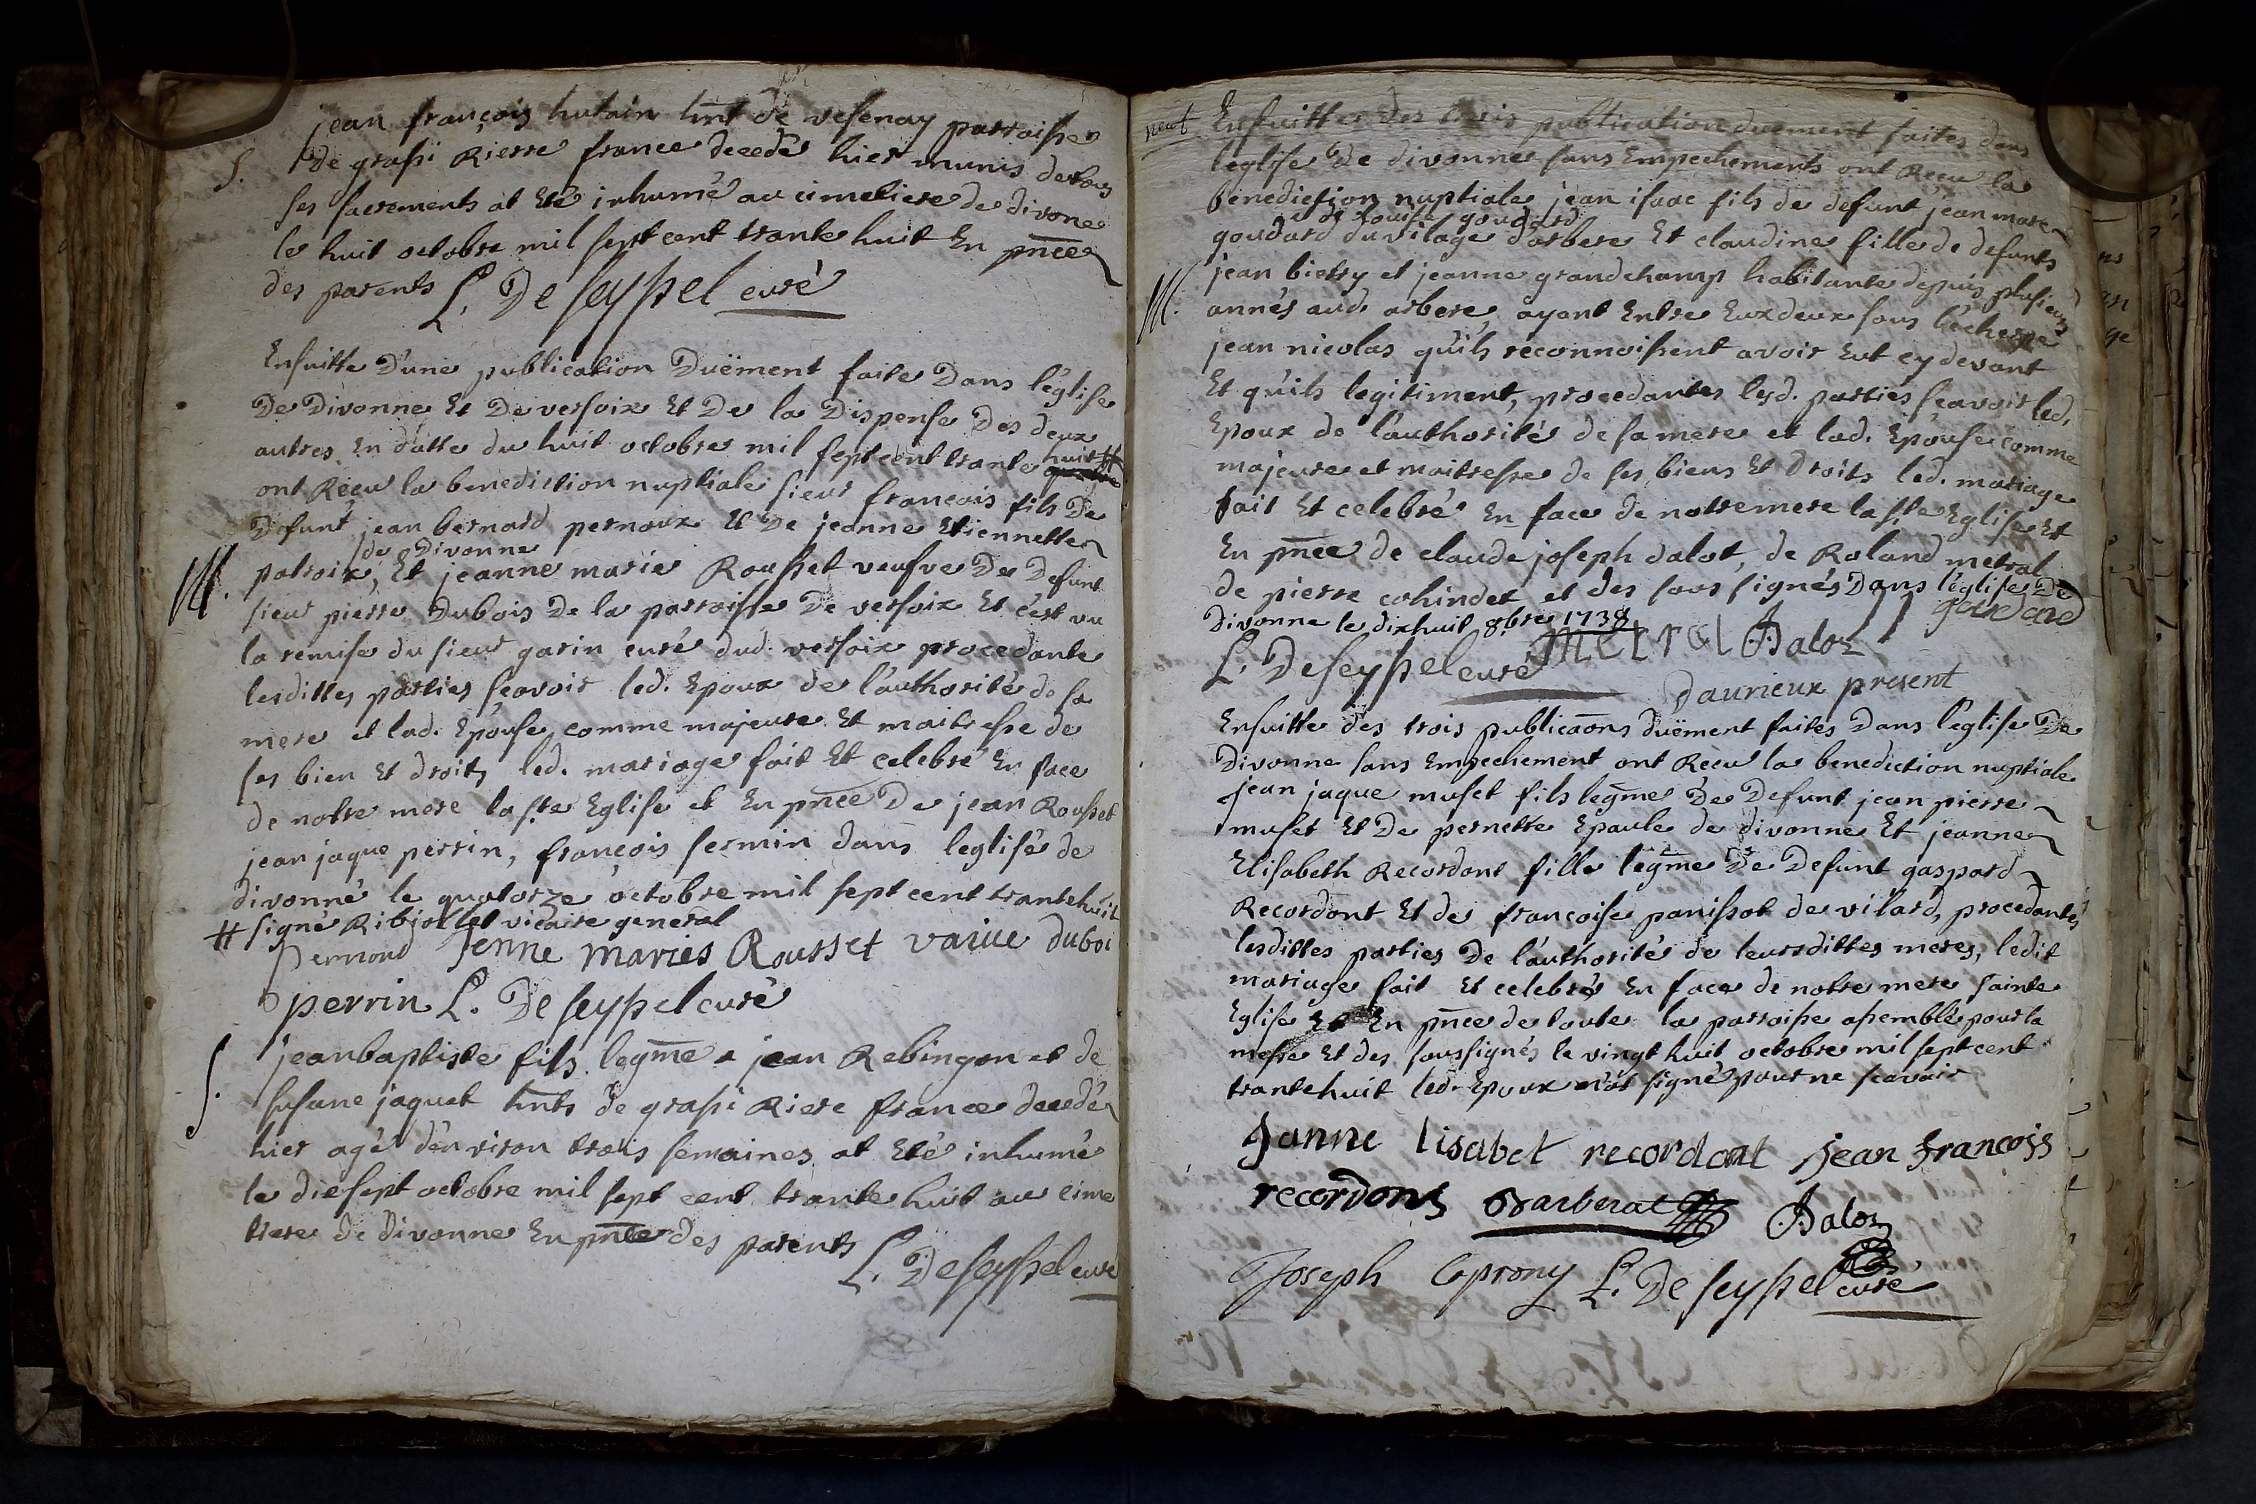 jean françois hutain hnt de vesenay parroisse
S. de grassi Rierre france decedé hier munis de tous
ses sacrements at eté inhumé au cimetiere de divone
le huit octobre mil sept cent trante huit En pnce
des parents L. De seyssel curé
Ensuitte D'une publication Duëment faite Dans l'église
De Divonne Et De versoix Et De la Dispense Des deux
autres En datte du huit octobre mil sept cent trante huit #
ont Reçu la benediction nuptiale sieur françois fils De
Defunt jean bernard pernoux Et De jeanne Etiennette
de Divonne
M. patroix, Et jeanne marie Rousset veufve De Defunt
sieur pierre Dubois De la parroisse De versoix Et c'est vu
la remise du sieur garin curé dud. versoix procedante
lesdittes parties sçavoir led. Epoux de l'authorité de sa
mere et lad. Epouse comme majeure Et maitresse de
ses bien Et droits led. mariage fait Et celebré En face
de notre mere la ste Eglise et En pnce De jean Rousset
jean jaque perrin, françois fermin dans leglise de
divonne le quatorze octobre mil sept cent trante huit
# signé Ribiollet vicaire general
Pernoud Jenne Maries Rousset vaiue duboi
perrin L. De seyssel curé
S. jean baptiste fils legme a jean Rebingon et de
susane jaquet hnts de grassi Riere france decedé
hier agé d'environ trois semaines at eté inhumé
le diesept octobre mil sept cent trante huit au cime
tiere de Divonne En pnce des parents
L. De seyssel curé
Ensuitte des trois publication duement faites dans
leglise de divonne sans Empechements ont Recu la
benediction nuptiale jean isaac fils de defunt jean marc
et de louise goudard
goudard du vilage d'arbere Et claudine fille de defunts
M. jean bietry et jeanne grandchamp habitante depuis plusieurs
annés aud. arbere, ayant Entre Eux deux sous l'echerpe
jean nicolas qu'ils reconnoissent avoir Eut cy devant
Et qu'ils legitiment, procedantes lesd. parties sçavoir led.
Epoux de l'authorité de sa mere et lad. Epouse comme
majeure et maitresse de ses biens Et droits led. mariage
fait Et celebré En face de notre mere la ste Eglise Et
En pnce de claude joseph dalot, de Roland metral
de pierre cohindet et des sous signés Dans l'église De
Divonne le dixhuit 8bre 1738 goudard
L. De seyssel curé metral Daloz
Daurieux present
Ensuitte des trois publicaons duëment faites Dans l'eglise De
Divonne sans Empechement ont Recu la benediction nuptiale
jean jaque muset fils legme De Defunt jean pierre
muset Et De pernette Epaule de divonne Et jeanne
Elisabeth Recordont fille legme De Defunt gaspard
Recordont Et de françoise panissot de vilard, procedantes
lesdittes parties De l'authorité de leursdittes meres, ledit
mariage fait Et celebré En face de notre mere sainte
Eglise Et En pnce de toute la parroisse assemblé pour la
messe Et des soussignés le vingt huit octobre mil sept cent
trante huit led. Epoux n'at signé pour ne sçavoir
Janne lisabet recordont jean françois
recordons Daloz
Joseph L. De seyssel curé